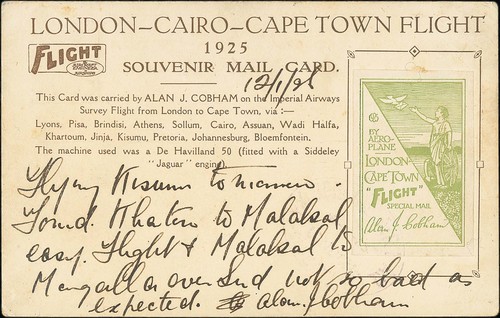 LONDON–CAIRO–CAPE TOWN FLIGHT
1925
SOUVENIR MAIL CARD.
FLIGHT
12/1/26
This Card was carried by ALAN J. COBHAM on the Imperial Airways
Survey Flight from London to Cape Town, via :—
Lyons, Pisa, Brindisi, Athens, Sollum, Cairo, Assuan, Wadi Halfa,
Khartoum, Jinja, Kisumu, Pretoria, Johannesburg, Bloemfontein.
The machine used was a De Havilland 50 (fitted with a Siddeley
"Jaguar" engine)
BY
AERO-
PLANE
LONDON–
CAPE TOWN
"FLIGHT"
SPECIAL MAIL
Alan J Cobham
Flying Kisumu tomorrow -
Found Khatoum to Malakal
easy. Flight Malakal to
Mongalla over Sud not so bad as
expected. Alan J Cobham